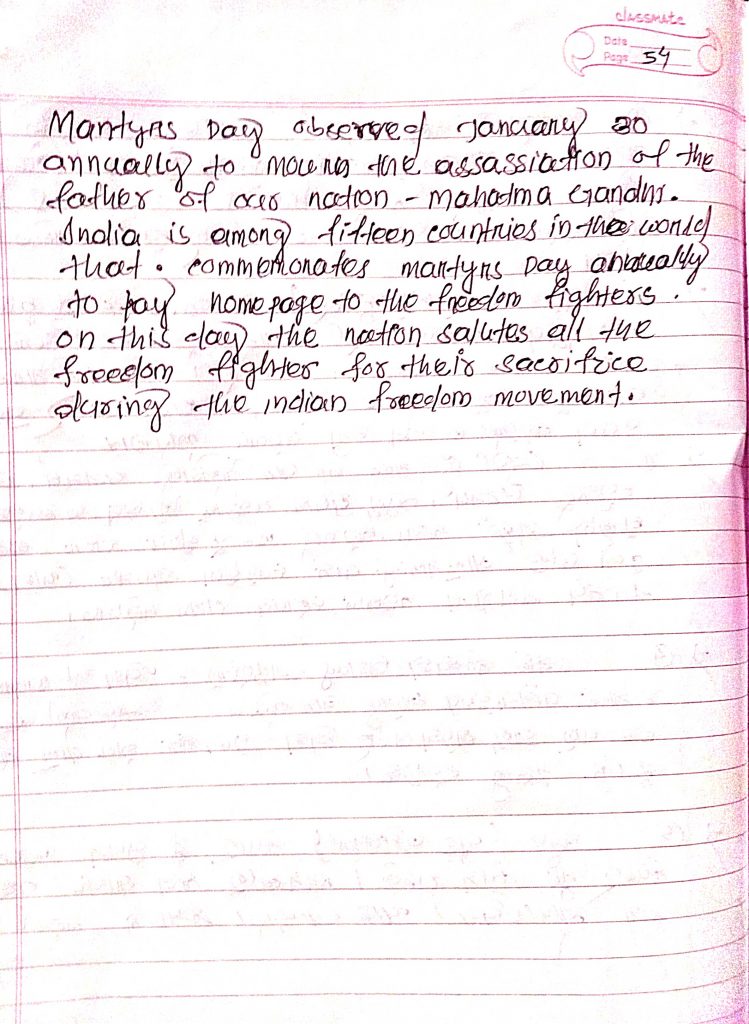 classmate
Date
Page 54
Martyrs Day observed January 30
annually to mourn the assassiation of the
father of our nation - Mahatma Gandhi.
India is among fifteen countries in the world
that. commemorates martyrs Day annually
to pay homepage to the freedom fighters.
on this day the nation salutes all the
freedom fighter for their sacrifice
during the indian freedom movement.